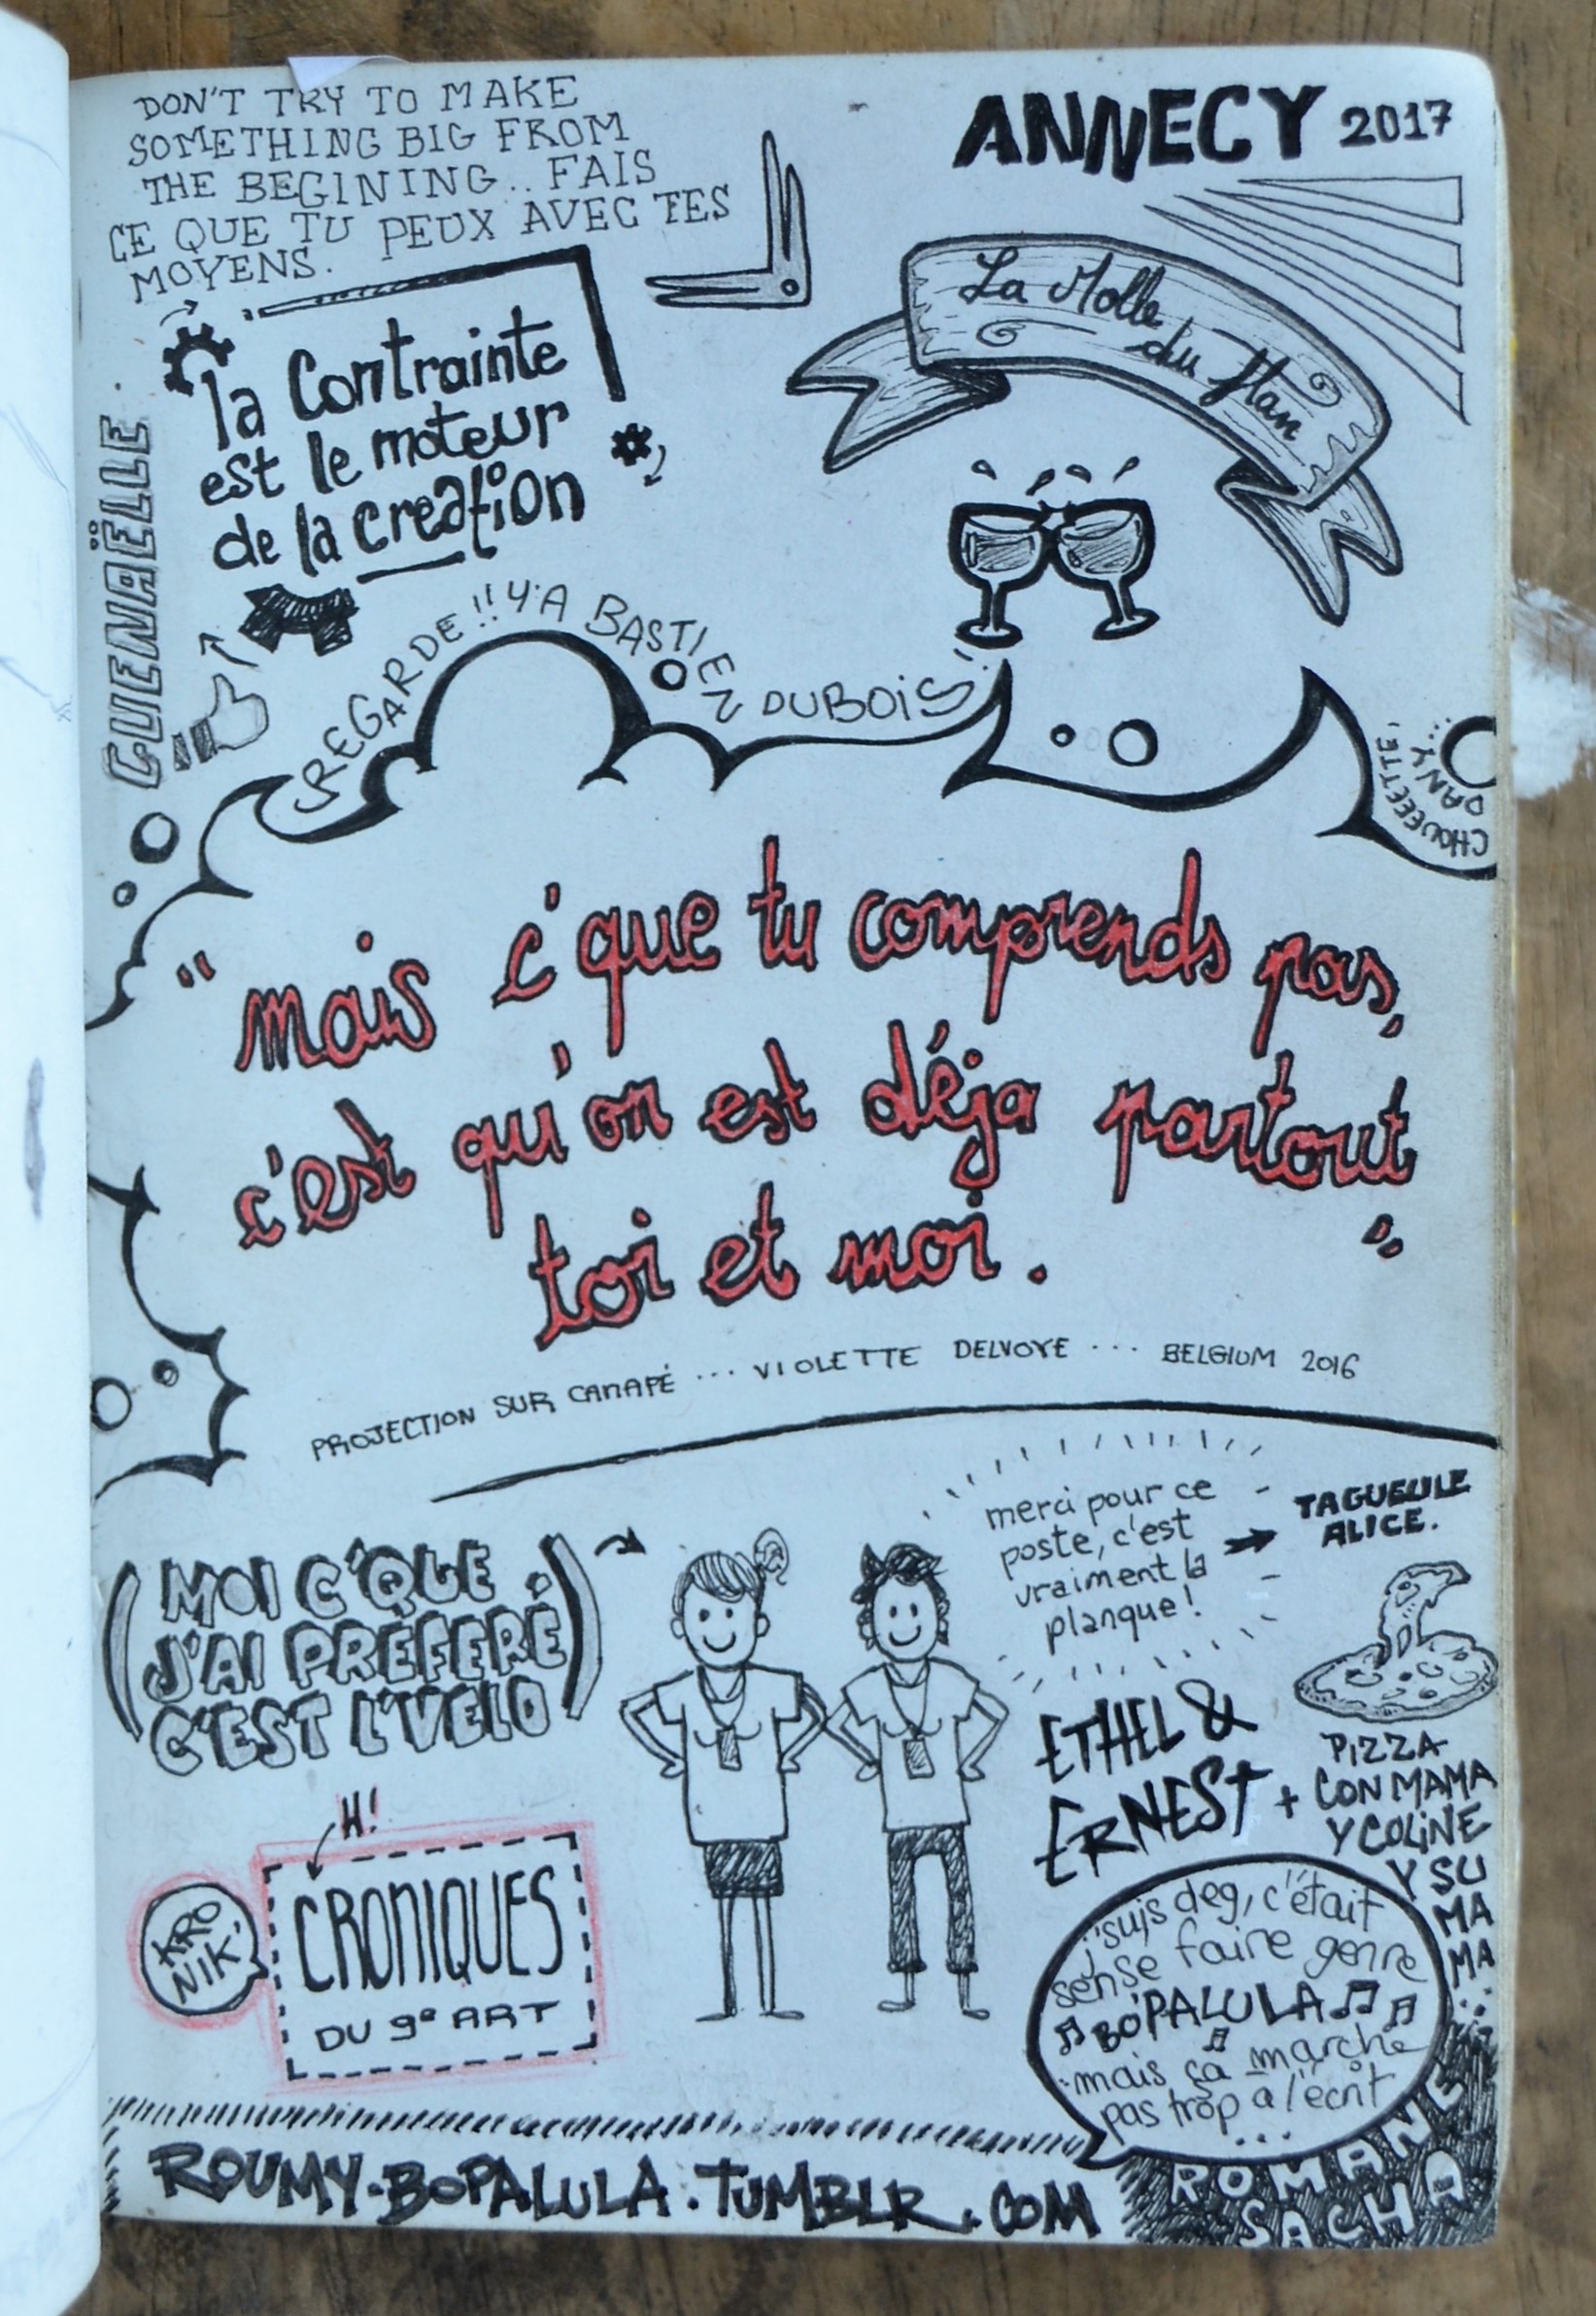 DON'T TRY TO MAKE
SOMETHING BIG FROM
THE BEGINING.. FAIS
CE QUE TU PEUX AVEC TES
MOYENS.
ANNECY 2017
La Molle
du Flan
la contrainte
est le moteur
de la creation
GUENAËLLE
REGARDE!! Y'A BASTIEN DUBOIS!
CHOUEEETTE,
DANY...
"mais c'que tu comprends pas,
c'est qu'on est déja partout
toi et moi."
PROJECTION SUR CANAPÉ ... VIOLETTE DELVOYE ... BELGIUM 2016
(MOI C'QUE
J'AI PRÉFERÉ,
C'EST L'VELO)
merci pour ce
poste, c'est
vraiment la
planque!
TAGUEULE
ALICE.
ETHEL &
ERNEST +
PIZZA
CON MAMA
Y COLINE
Y SU
MA
MA...
H!
KRO
NIK'
CRONIQUES
DU 9° ART
j'suis deg, c'était
sensé faire genre
BO'PALULA
mais ça marche
pas trop à l'écrit
...
ROUMY-BOPALULA.TUMBLR.COM
ROMANE
SACHA